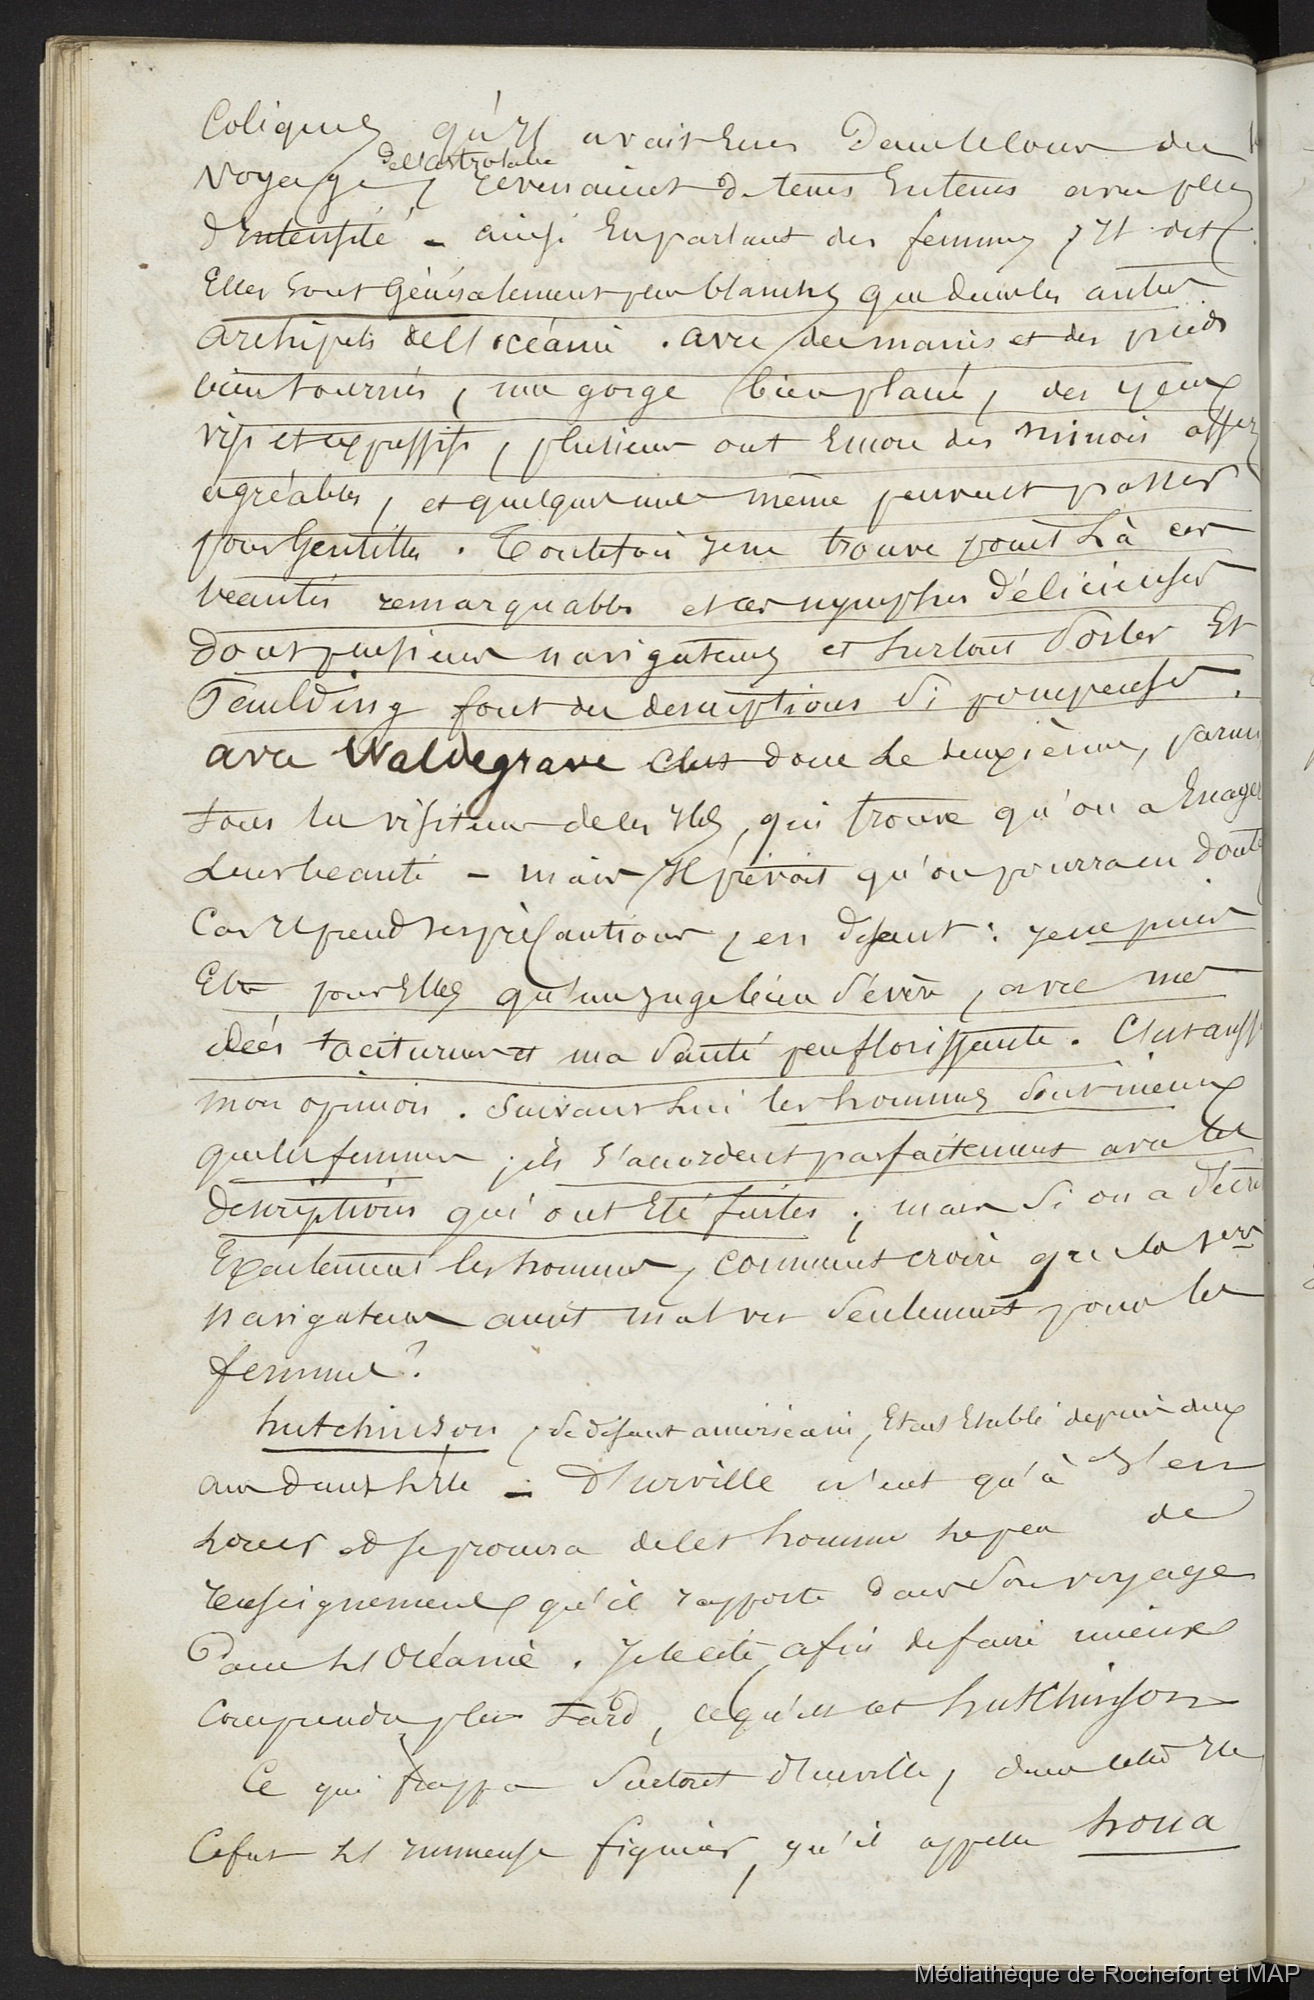 Coliques qu'il avait eues dans le cour du
voyage de l'astrolabe, revenaient de tems en tems avec plus
d'intensité - ainsi en parlant des femmes, il dit
Elles sont généralement plus blanches que dans les autres
archipels de l'océanie. avec des mains et des pieds
bien tournés, une gorge bien placée, des yeux
vifs et expressifs, plusieurs ont encore des minois assez
agréables, et quelques unes même peuvent passer
pour Gentilles. Toutefois je ne trouve point là ces
beautés remarquables et ces nymphes délicieuses
dont plusieurs navigateurs et surtout Porter Et
Paulding font des descriptions si pompeuses.
avec Waldegrave c'est donc le deuxième, parmi
tous les visiteurs de ces iles, qui trouve qu'on a Exagéré
leur beauté - mais il prévoit qu'on pourra en douter
Car il prend ses précautions, en disant : je ne puis
Etre pour Elles qu'un juge bien sévère, avec mes
idées taciturnes et ma santé peu florissante. C'est aussi
mon opinion. Suivant lui les hommes sont mieux
que les femmes ; ils s'accordent parfaitement avec les
descriptions qui ont été faites ; mais si on a décrit
Exactement les hommes, comment croire que les 1ers
navigateurs aient mal vu seulement pour les
femmes ?
hutchinson, se disant américain, Etait Etabli depuis deux
ans dans l'ile - D'urville n'eut qu'à s'en
louer et se procura de cet homme le peu de
renseignements qu'il rapporte dans son voyage
Dans l'Océanie. Je le cite afin de faire mieux
comprendre plus tard, ce qu'est cet hutchinson
Ce qui frappa surtout d'urville, dans cette ile
Ce fut l'immense figuier, qu'il appelle houa
Médiathèque de Rochefort et MAP